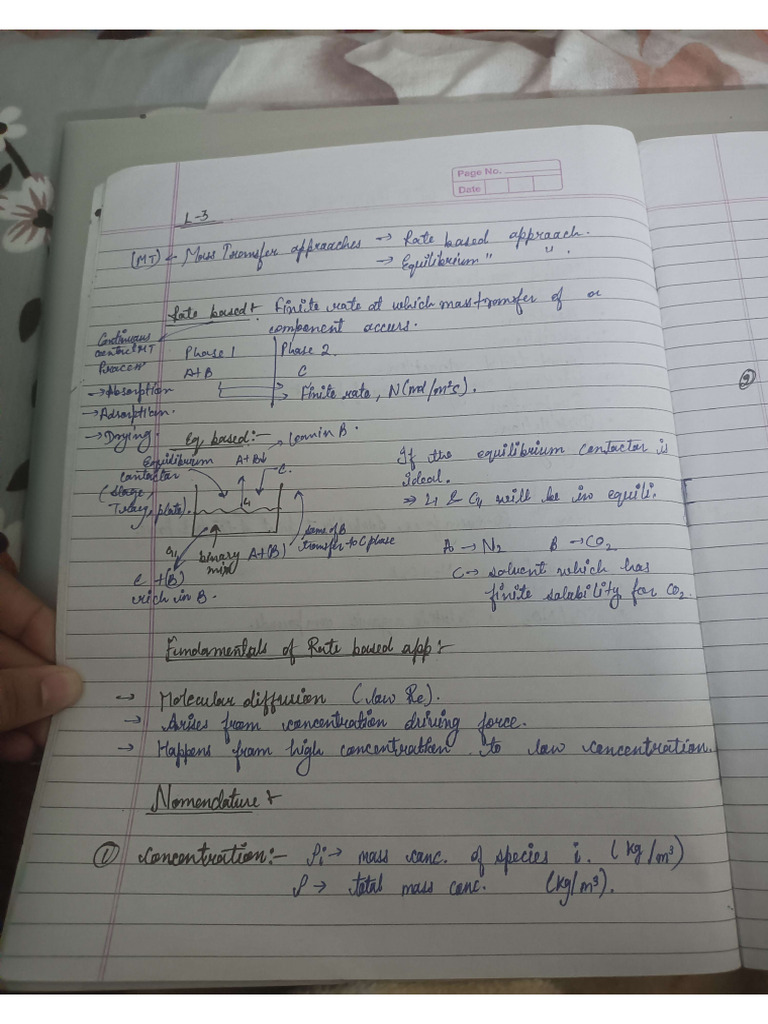 Page No.
Date
L-3
(MT) ← Mass Transfer approaches → Rate based approach.
→ Equilibrium " " .
Rate based :- Finite rate at which mass transfer of a
component occurs.
Continuous
contact MT
Process
→ Absorption
→ Adsorption.
→ Drying.
Phase 1 Phase 2.
A+B C
→ Finite rate, N(mol/m²s).
Eq. based:-
Equilibrium
contactor
(stage,
Tray, plate).
A+B↓ → lean in B.
C.
L1
G1
C +(B)
rich in B.
binary A+(B)
mix
some of B
transfer to C phase
If the equilibrium contactor is
ideal.
⇒ L1 & G1 will be in equili.
A → N2 B → CO2
C → solvent which has
finite solability for CO2.
Fundamentals of Rate based app :-
→ Molecular diffusion (low Re).
→ Arises from concentration driving force.
→ Happens from high concentration to low concentration.
Nomenclature :-
① Concentration:- ρi → mass conc. of species i. (kg/m³)
ρ → total mass conc. (kg/m³).
②